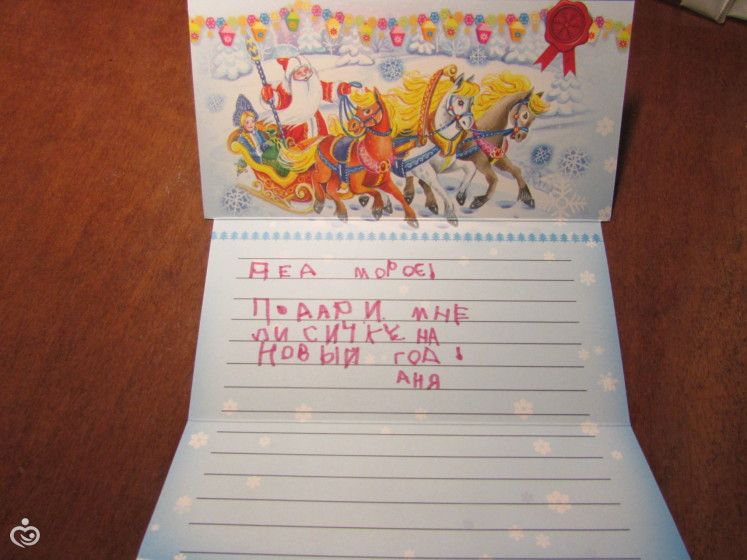 ДЕД МОРОЗ!
ПОДАРИ МНЕ
ЛИСИЧКУ НА
НОВЫЙ ГОД!
АНЯ